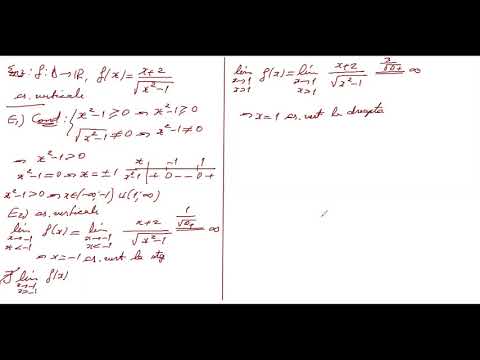 Ex: f: D → ℝ, f(x) = (x+2)/√(x²-1)
as. verticale
E₁) Cond: { x²-1 ≥ 0 ⇒ x²-1 ≥ 0
√(x²-1) ≠ 0 ⇒ x²-1 ≠ 0
⇒ x²-1 > 0
x²-1 = 0 ⇒ x = ±1
x -1 1
x²-1 + 0 - - 0 +
x²-1 > 0 ⇒ x ∈ (-∞; -1) ∪ (1; ∞)
E₂) as. verticale
lim x→-1 x<-1 f(x) = lim x→-1 x<-1 (x+2)/√(x²-1) = 1/√0₊ = ∞
⇒ x = -1 as. vert la stg
∄ lim x→-1 x>-1 f(x)
lim x→1 x>1 f(x) = lim x→1 x>1 (x+2)/√(x²-1) = 3/√0₊ = ∞
⇒ x = 1 as. vert la dreapta